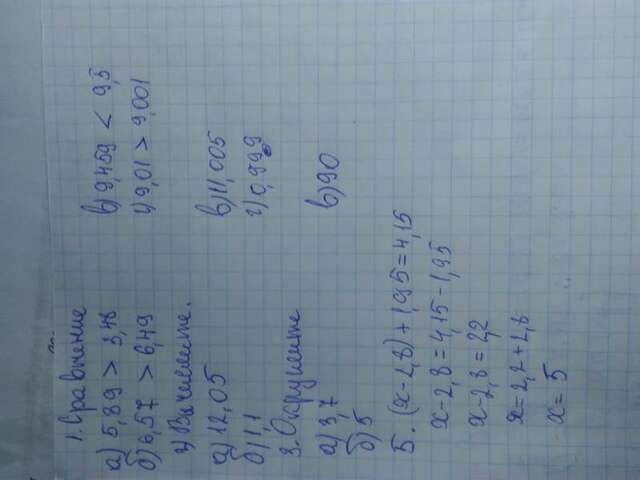 1. Сравнение
а) 5,89 > 3,48 в) 9,459 < 9,5
б) 6,57 > 6,49 г) 9,01 > 9,001
2) Вычислите.
а) 12,05 в) 11,005
б) 1,1 г) 0,999
3. Округлите
а) 3,7 в) 90
б) 5
5. (x-2,8)+1,95=4,15
x-2,8=4,15-1,95
x-2,8=2,2
x=2,2+2,8
x=5